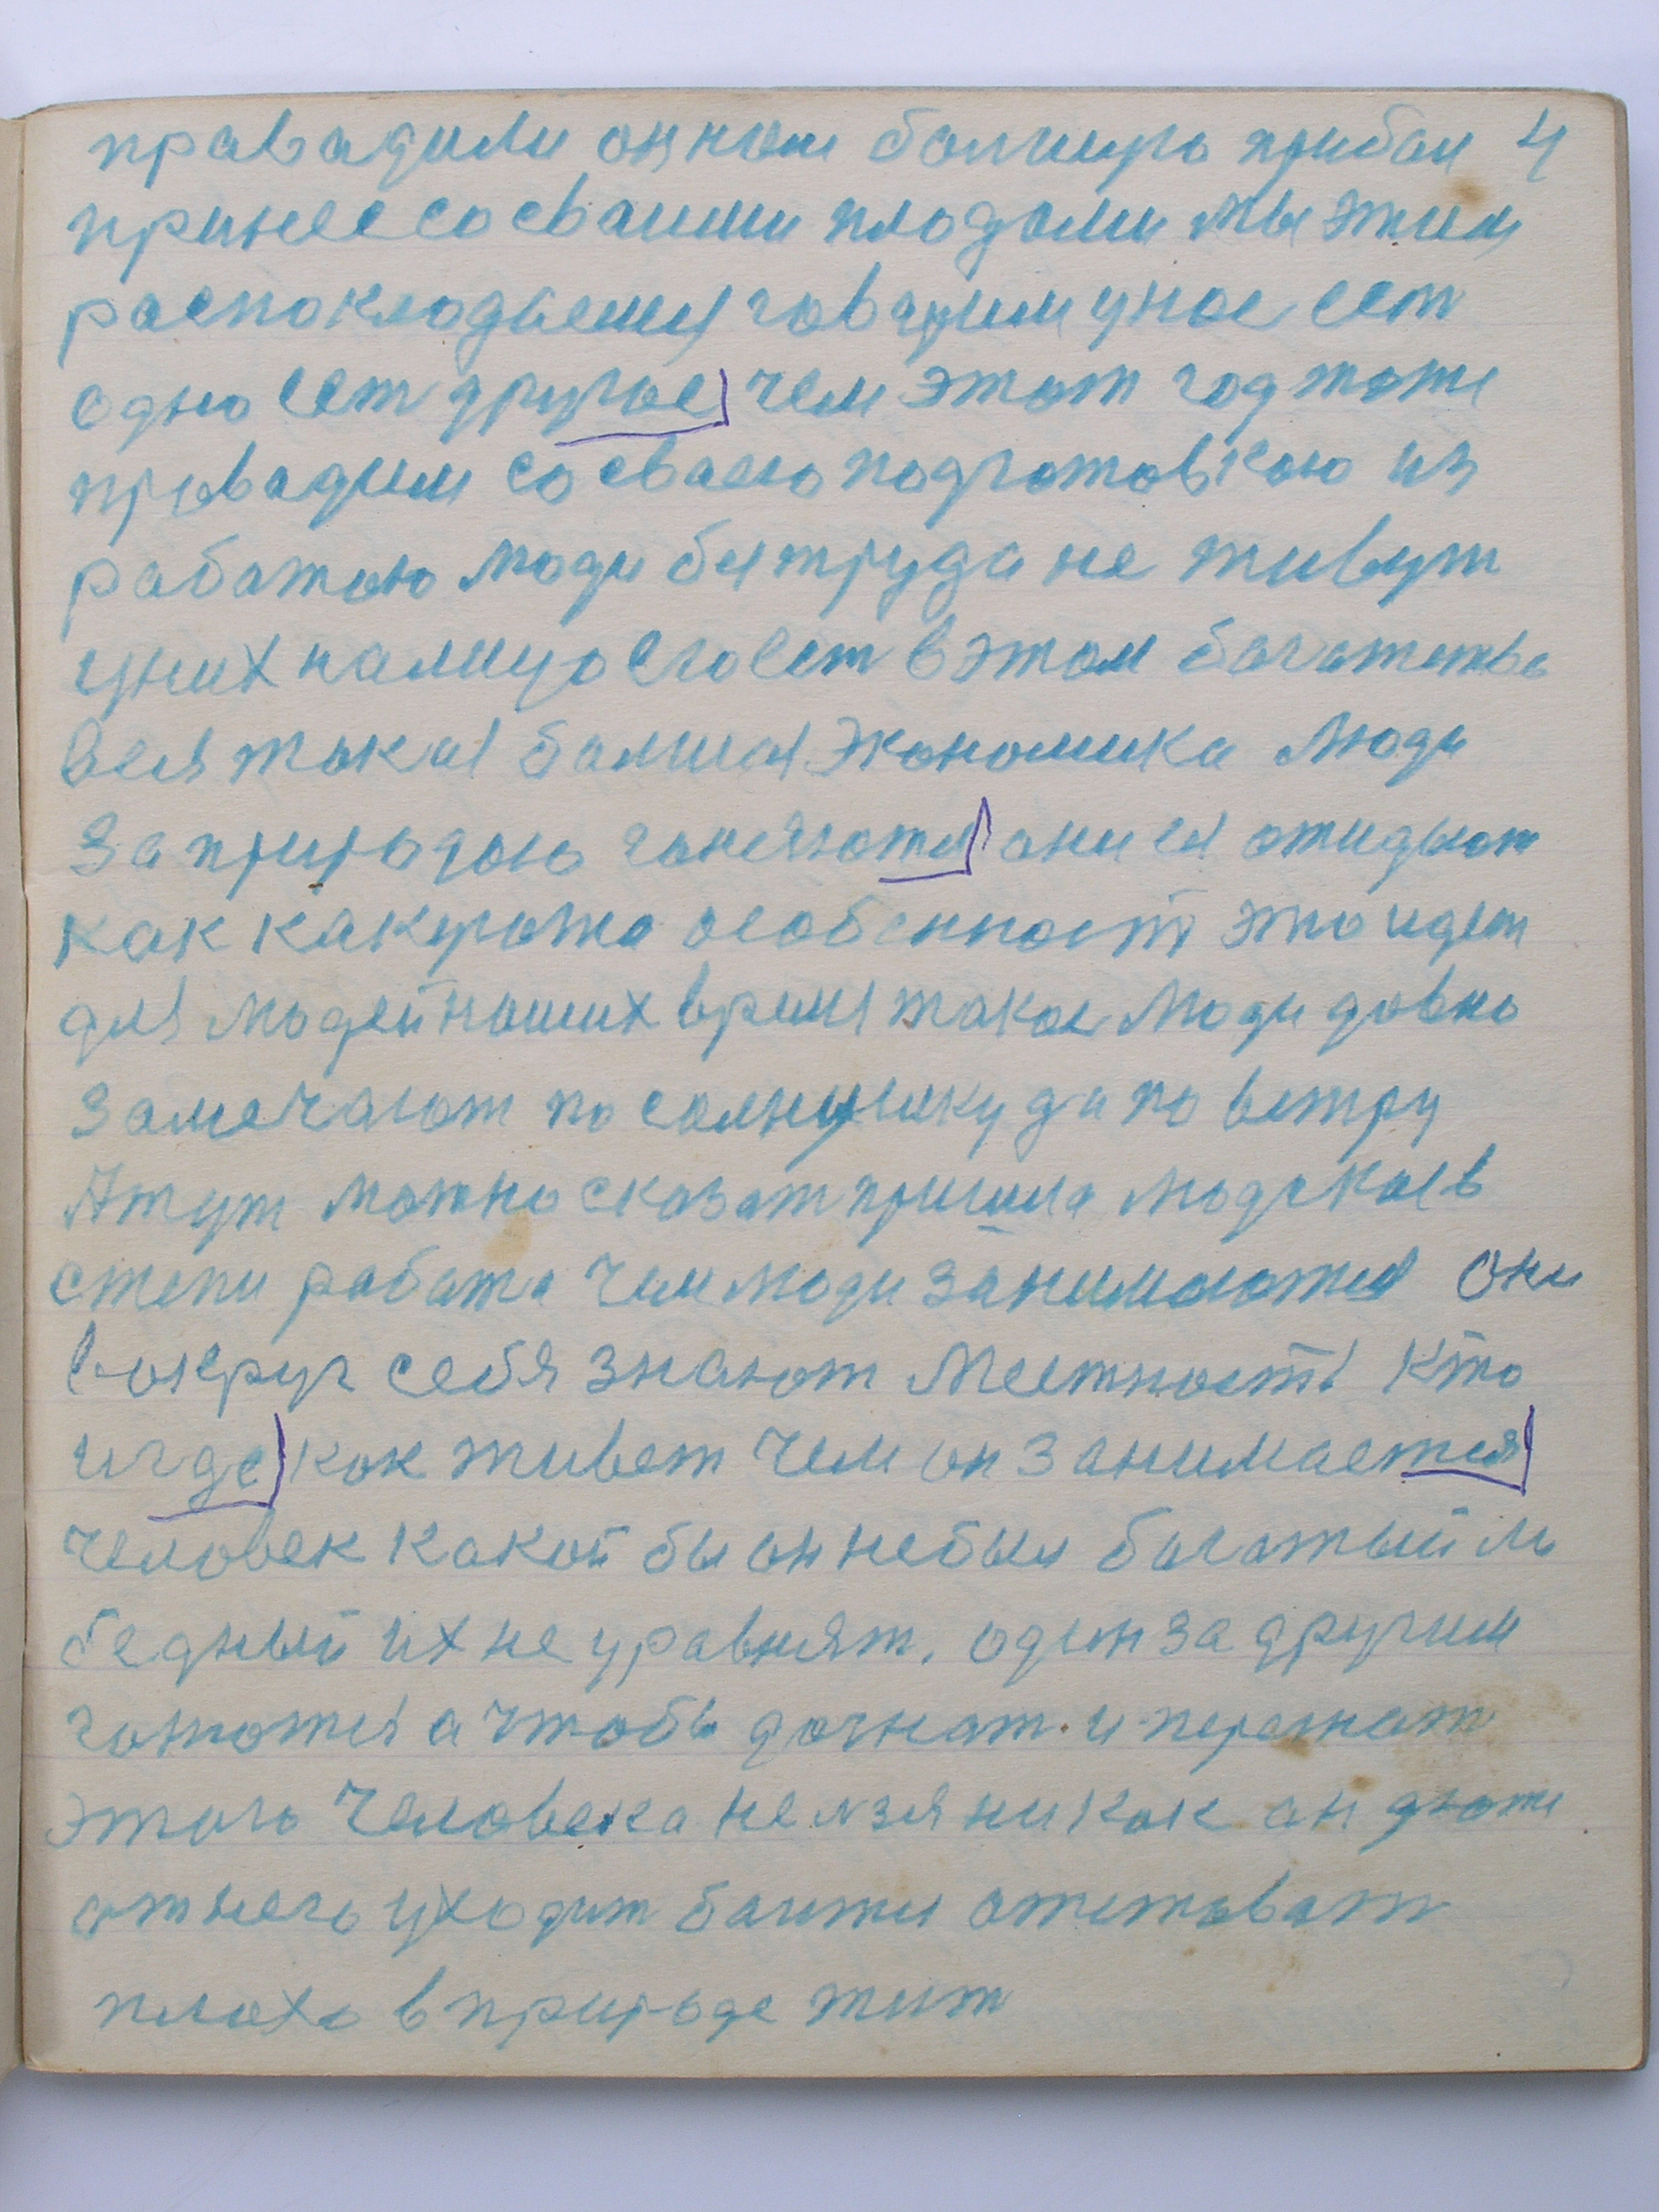 правадили он нам балшую прибал 4
принес со сваими плодами мы этим
распокладаемся гаварим у нас ест
одно ест другое чем этот год тоже
правадим со сваею подготовкою из
работою люди без труда не живут
у них на лицо его ест в этом богатства
вся такая балшая экономика люди
за природою гоняются они ея ожидают
как какуюто особенност это идет
для людей наших время такое люди давно
замечают по солнушку да по ветру
А тут можно сказат пришла людская в
степи работа чем люди занимаются они
вокруг себя знают Местност Кто
и где как живет чем он занимается
человек какой бы он не был богатый ль
бедный их не уравнят. один за другим
гонятся а чтобы догнат и перегнат
этого человека нелзя никак он тоже
от него уходит боится отстоват
плохо в природе жит